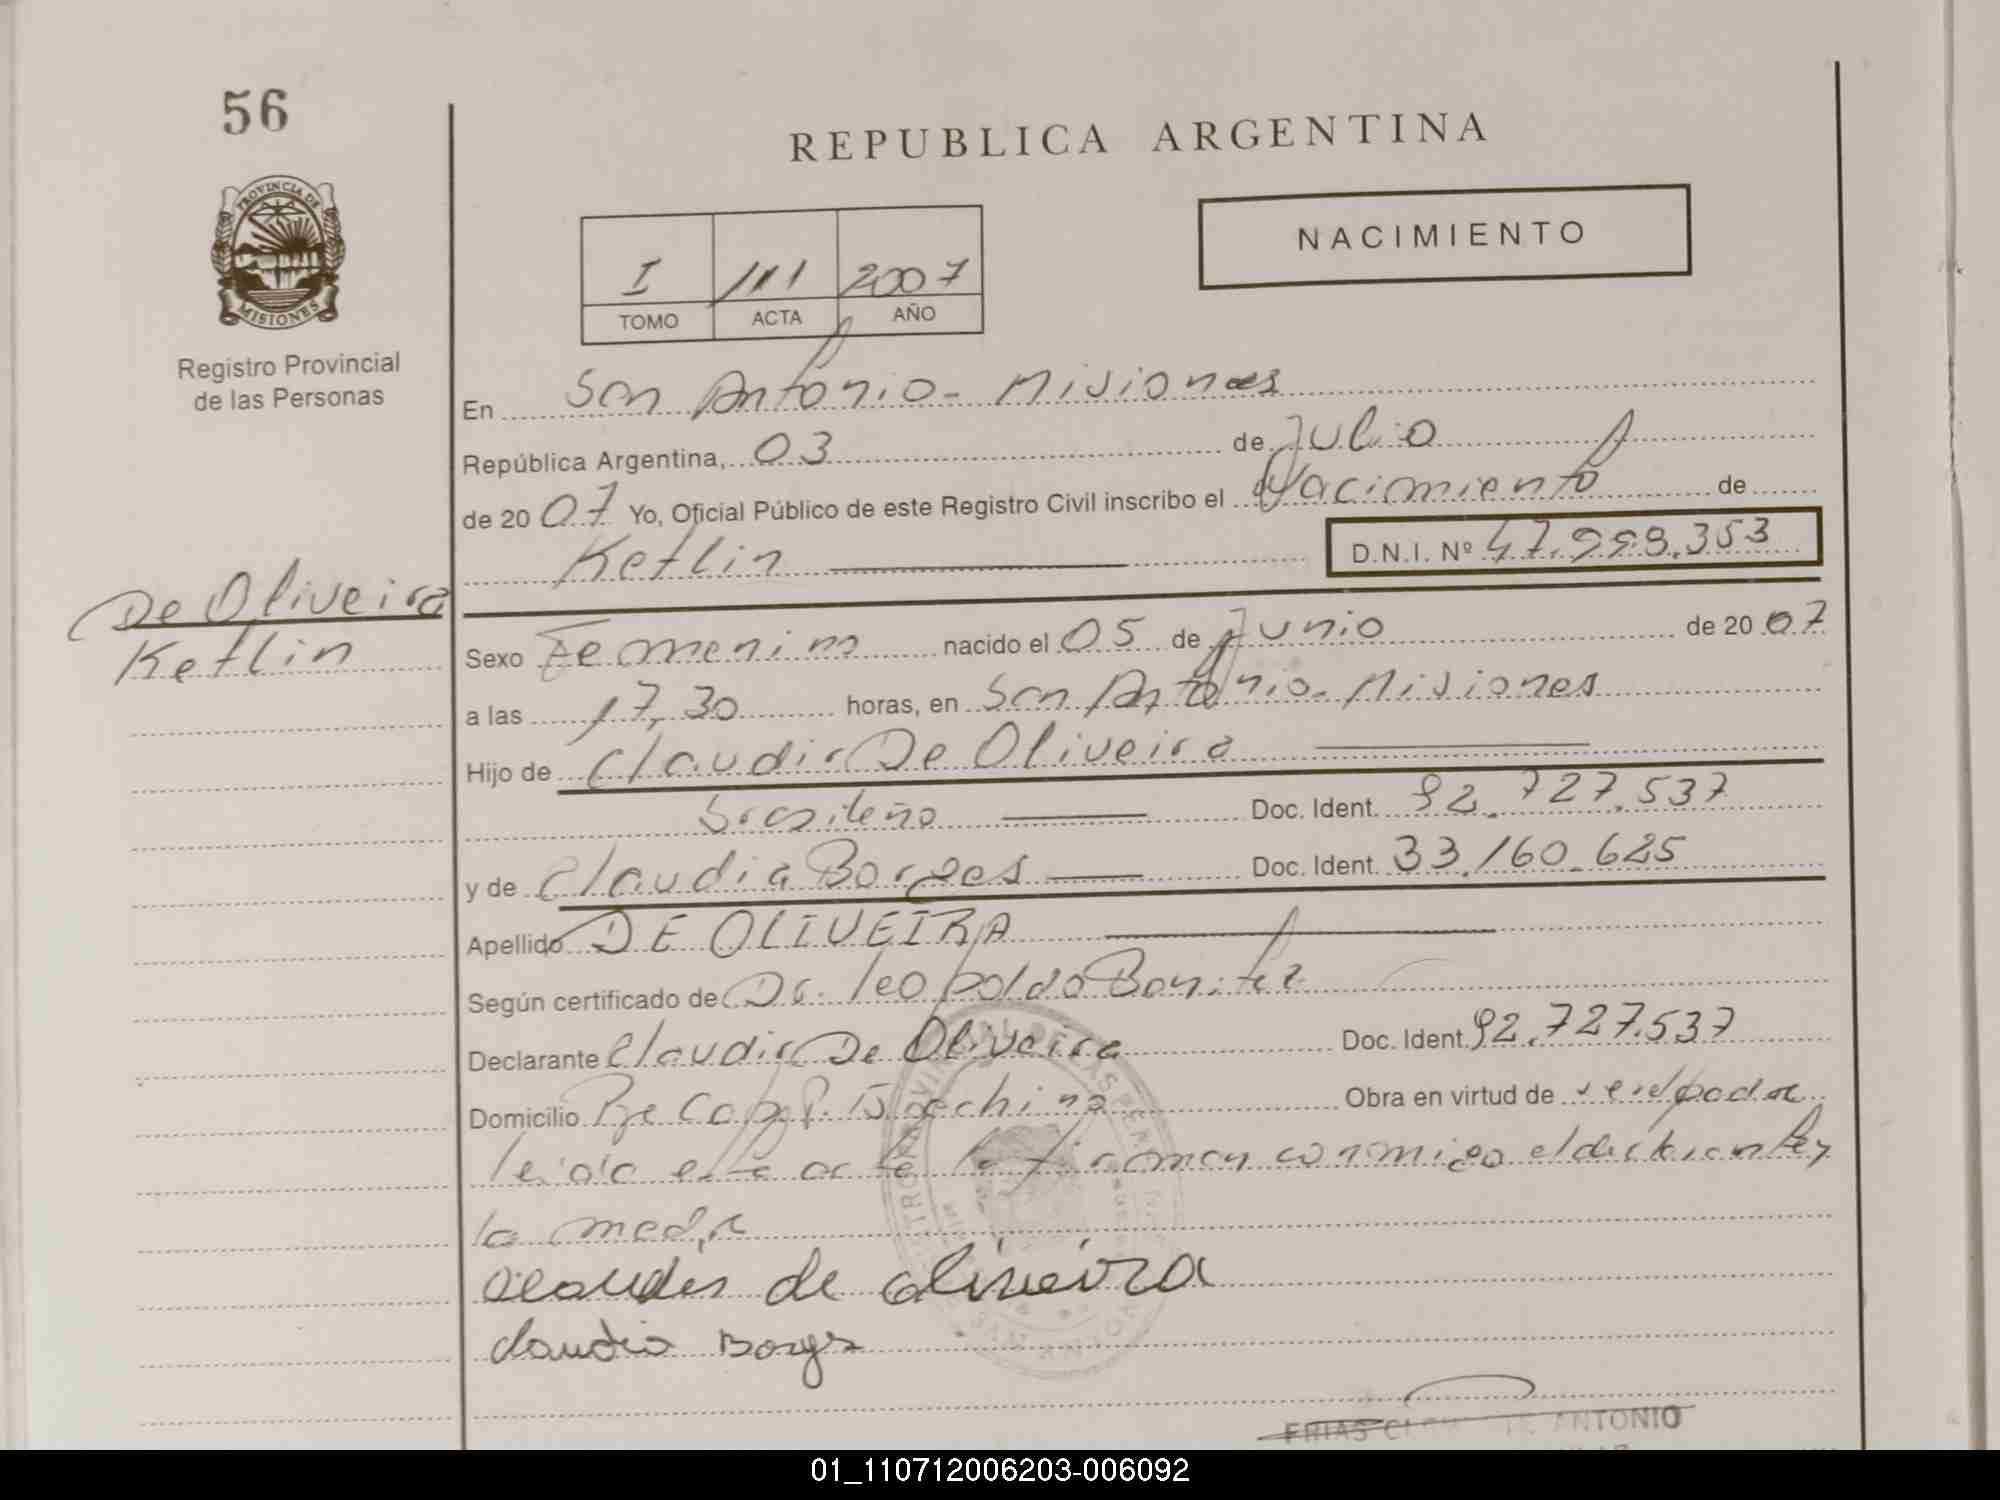 56
REPUBLICA ARGENTINA
PROVINCIA DE
MISIONES
NACIMIENTO
I 111 2007
TOMO ACTA AÑO
Registro Provincial
de las Personas
En San Antonio - Misiones
República Argentina, 03 de Julio
de 20 07 Yo, Oficial Público de este Registro Civil inscribo el Nacimiento de
Ketlin D.N.I. Nº 47.998.353
De Oliveira
Ketlin
Sexo Femenino nacido el 05 de Junio de 20 07
a las 17,30 horas, en San Antonio - Misiones
Hijo de Claudir De Oliveira
brasileño Doc. Ident. 92.727.537
y de Claudia Borges Doc. Ident. 33.160.625
Apellido DE OLIVEIRA
Según certificado de Dr. Leopoldo Benitez
Declarante Claudir De Oliveira Doc. Ident. 92.727.537
Domicilio Pje Cap. Obra en virtud de
leida esta acta la firman conmigo el declarante y
la madre
de oliveira
claudia Borges
FRIAS ANTONIO
01_110712006203-006092